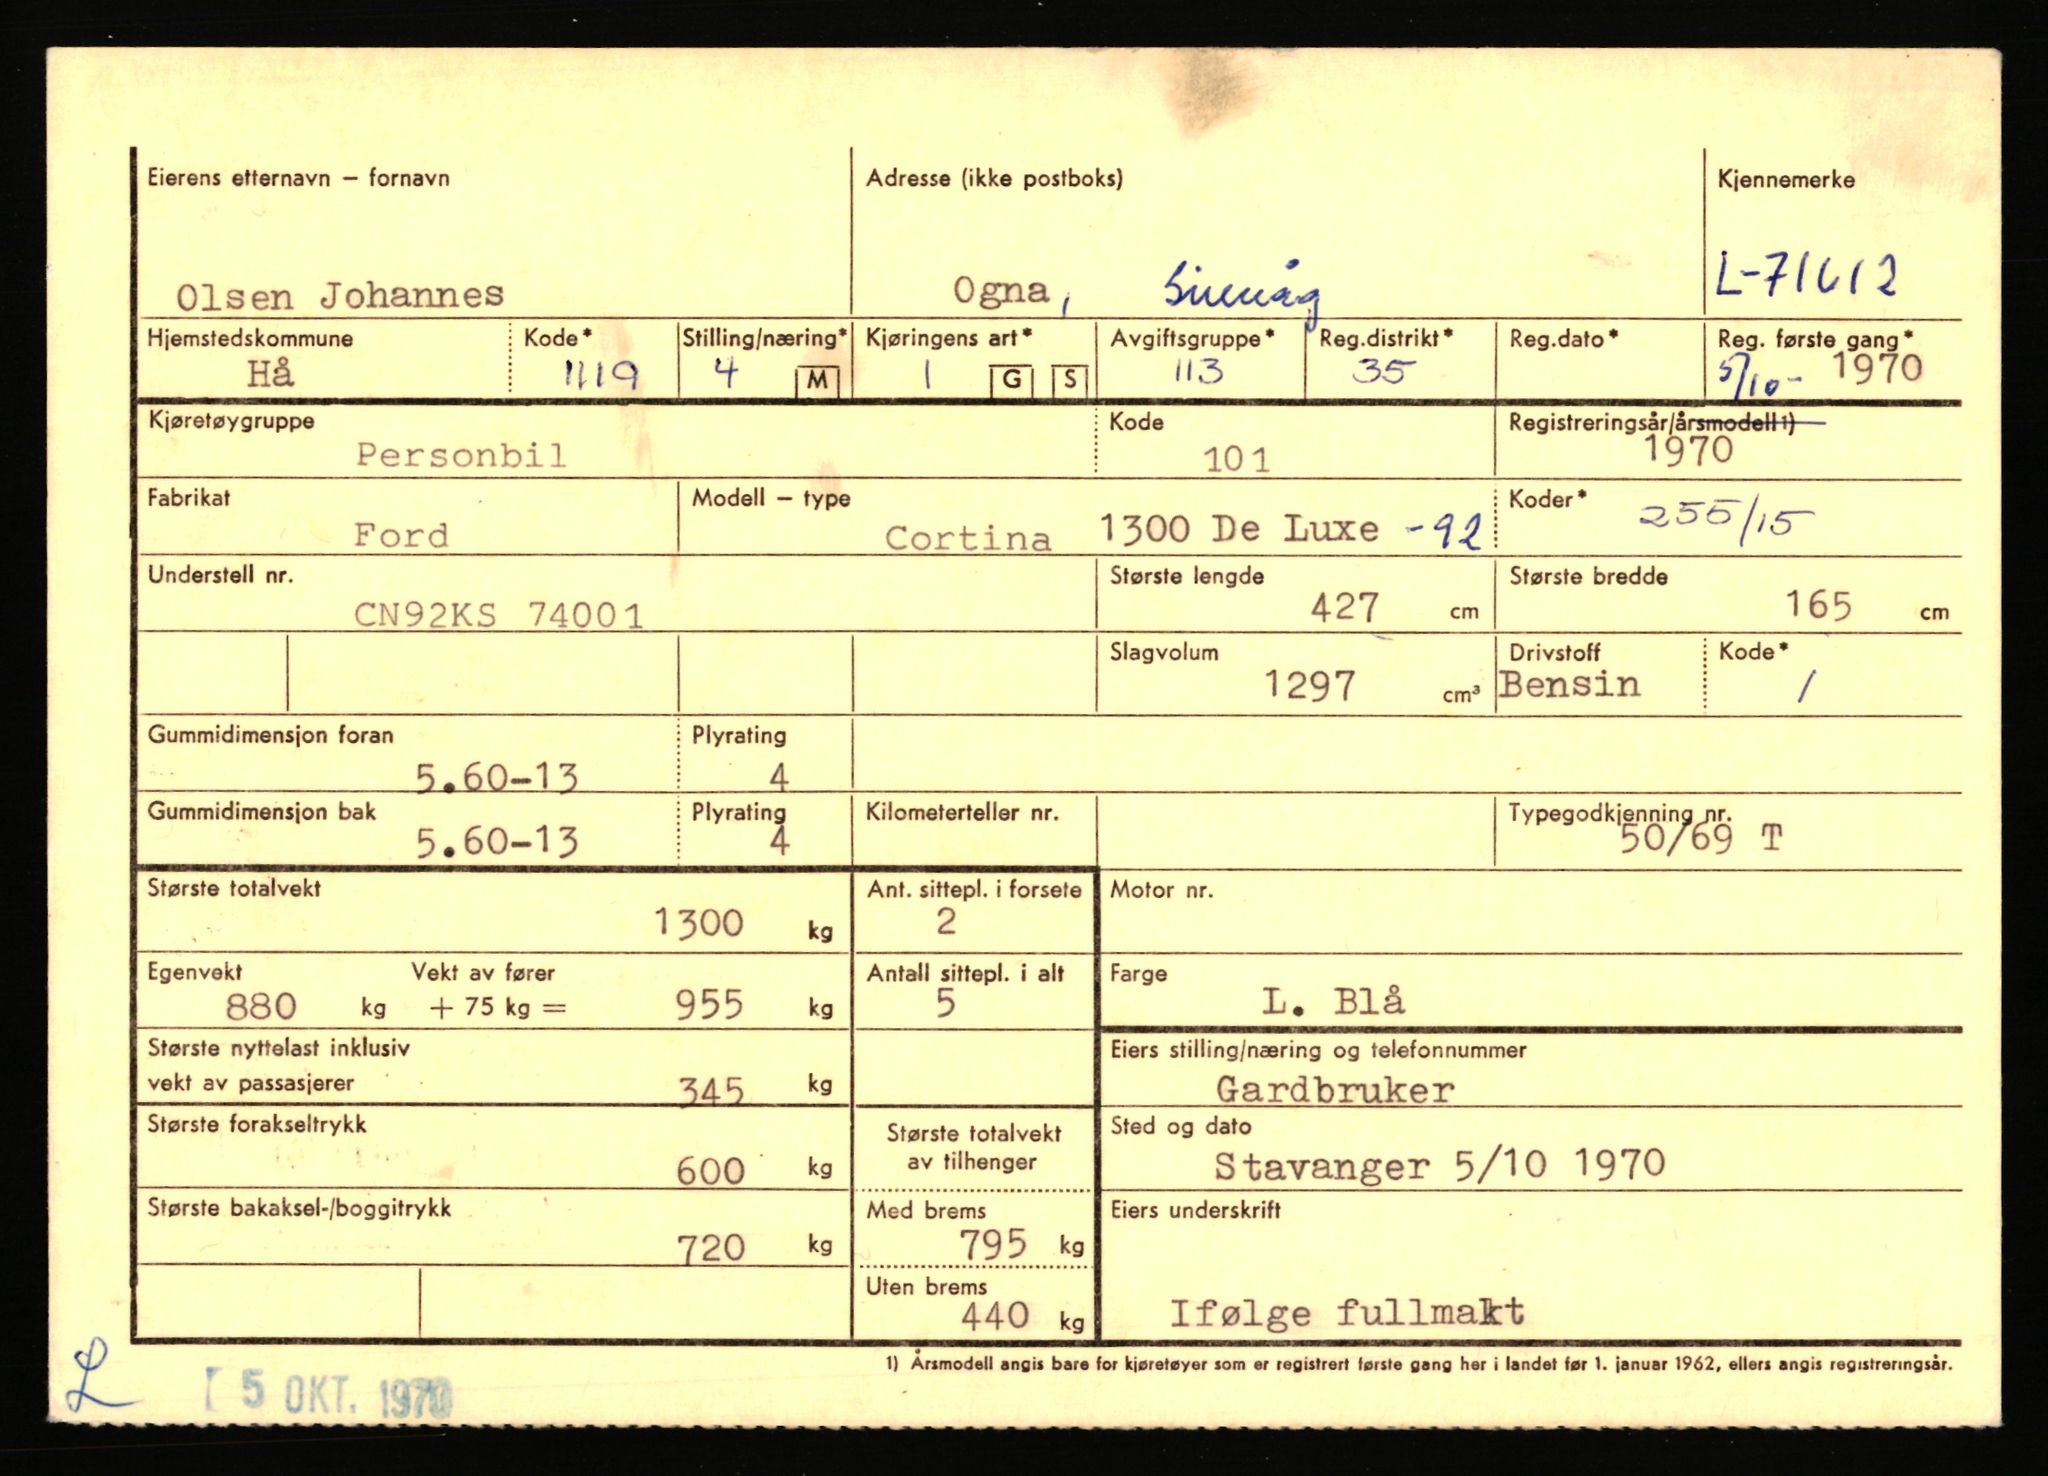 Eierens etternavn – fornavn
Adresse (ikke postboks)
Kjennemerke
Olsen Johannes
Ogna, Sirevåg
L-71612
Hjemstedskommune
Kode*
Stilling/næring*
Kjøringens art*
Avgiftsgruppe*
Reg.distrikt*
Reg.dato*
Reg. første gang*
Hå
1119
4 M
1 G S
113
35
5/10- 1970
Kjøretøygruppe
Kode
Registreringsår/årsmodell 1)
Personbil
101
1970
Fabrikat
Modell – type
Koder*
Ford
Cortina 1300 De Luxe -92
255/15
Understell nr.
Største lengde
Største bredde
CN92KS 74001
427 cm
165 cm
Slagvolum
Drivstoff
Kode*
1297 cm³
Bensin
1
Gummidimensjon foran
Plyrating
5.60-13
4
Gummidimensjon bak
Plyrating
Kilometerteller nr.
Typegodkjenning nr.
5.60-13
4
50/69 T
Største totalvekt
Ant. sittepl. i forsete
Motor nr.
1300 kg
2
Egenvekt
Vekt av fører
Antall sittepl. i alt
Farge
880 kg + 75 kg = 955 kg
5
L. Blå
Største nyttelast inklusiv
vekt av passasjerer
345 kg
Eiers stilling/næring og telefonnummer
Gardbruker
Største forakseltrykk
600 kg
Største totalvekt
av tilhenger
Sted og dato
Stavanger 5/10 1970
Største bakaksel-/boggitrykk
720 kg
Med brems
795 kg
Eiers underskrift
Uten brems
440 kg
Ifølge fullmakt
1) Årsmodell angis bare for kjøretøyer som er registrert første gang her i landet før 1. januar 1962, ellers angis registreringsår.
L
5 OKT. 1970